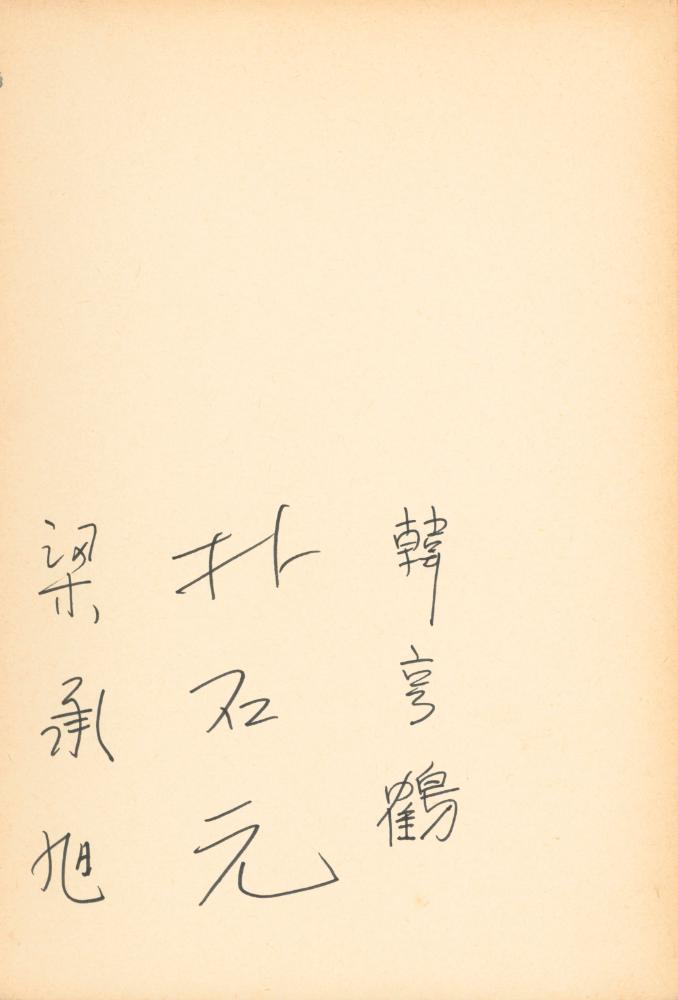 韓亨鶴
朴石元
梁承旭